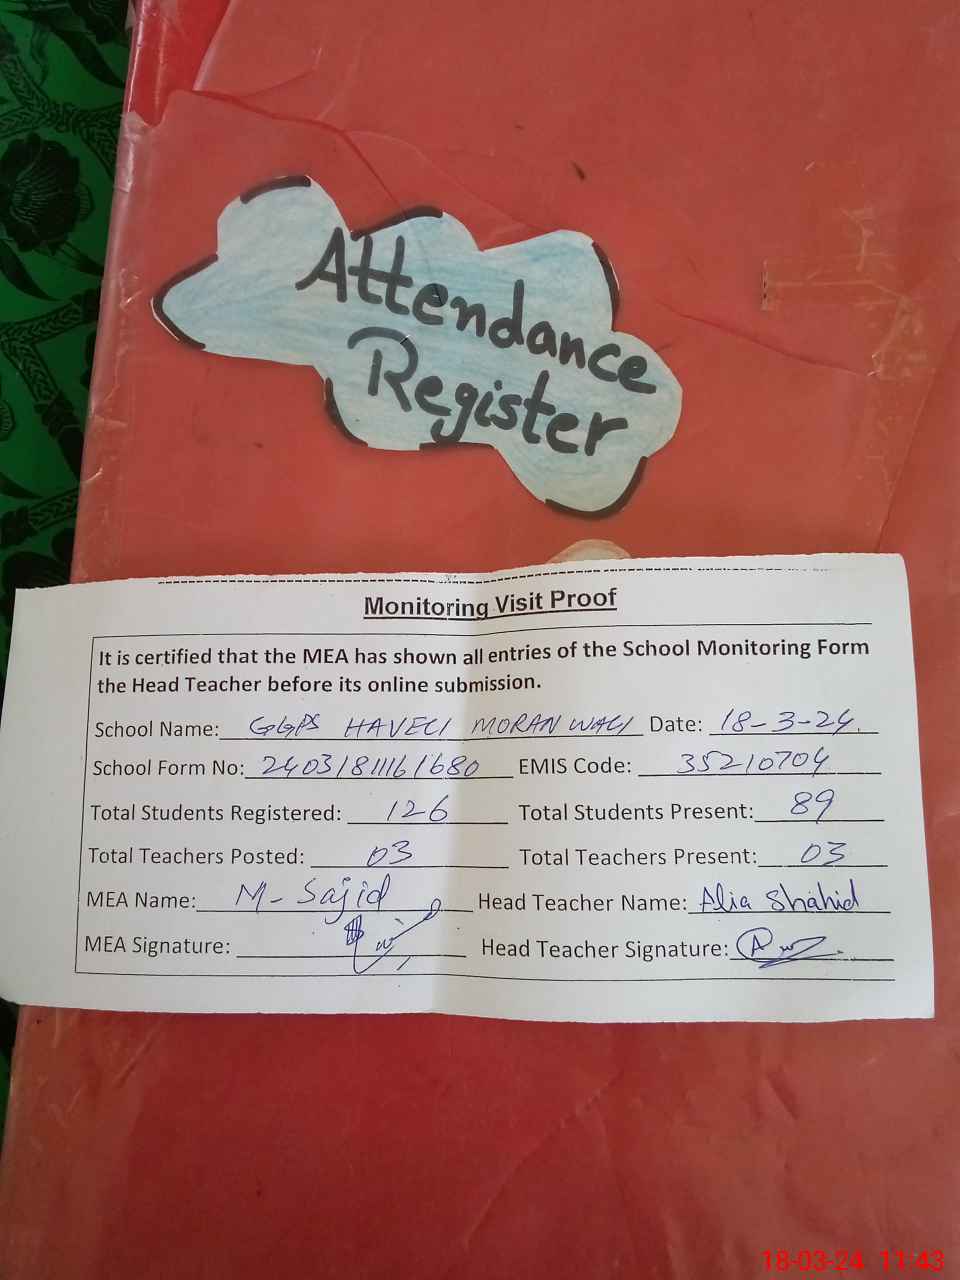 Attendance
Register
Monitoring Visit Proof
It is certified that the MEA has shown all entries of the School Monitoring Form
the Head Teacher before its online submission.
School Name: GGPS HAVELI MORAN WALI Date: 18-3-24.
School Form No: 24031811161680 EMIS Code: 35210704
Total Students Registered: 126 Total Students Present: 89
Total Teachers Posted: 03 Total Teachers Present: 03
MEA Name: M- Sajid Head Teacher Name: Alia Shahid
MEA Signature: Head Teacher Signature:
18-03-24 11:43